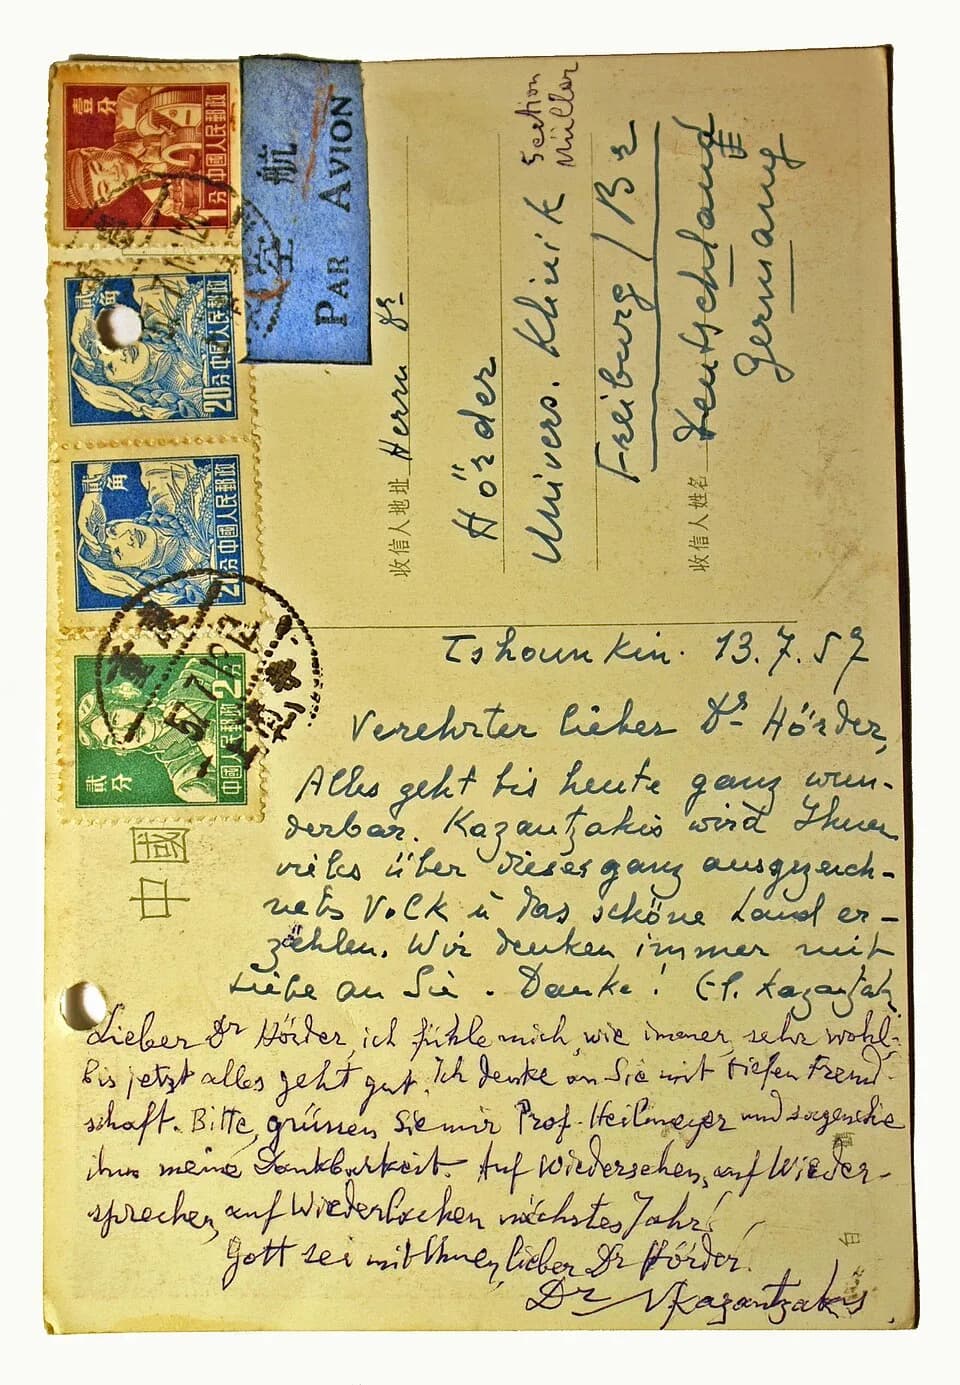 壹分
中國人民郵政
1分
貳角
20分
中國人民郵政
貳角
20分
中國人民郵政
貳分
中國人民郵政
2分
航空
PAR AVION
中国
收信人地址
Herrn Dr
Hörder
Univers. Klinik Section Müller
Freiburg / Br
Deutschland
Germany
收信人姓名
Tshounkin. 13.7.57
Verehrter lieber Dr Hörder,
Alles geht bis heute ganz wun-
derbar. Kazantzakis wird Ihnen
vieles über dieses ganz ausgezeich-
netes Volk u das schöne Land er-
zählen. Wir denken immer mit
Liebe an Sie. Danke! El. Kazantzak
Lieber Dr Hörder, ich fühle mich, wie immer, sehr wohl;
bis jetzt alles geht gut. Ich denke an Sie mit tiefen Freund-
schaft. Bitte, grüssen Sie mir Prof. Heilmeyer und sagen Sie
ihm meine Dankbarkeit. Auf Wiedersehen, auf Wieder-
sprechen, auf Wiederlachen nächstes Jahr!
Gott sei mit Ihnen, lieber Dr Hörder!
Dr N Kazantzakis